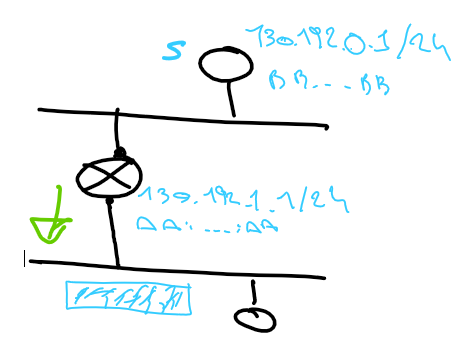 S 130.192.0.1/24
BB...BB
130.192.1.1/24
AA:...:AA